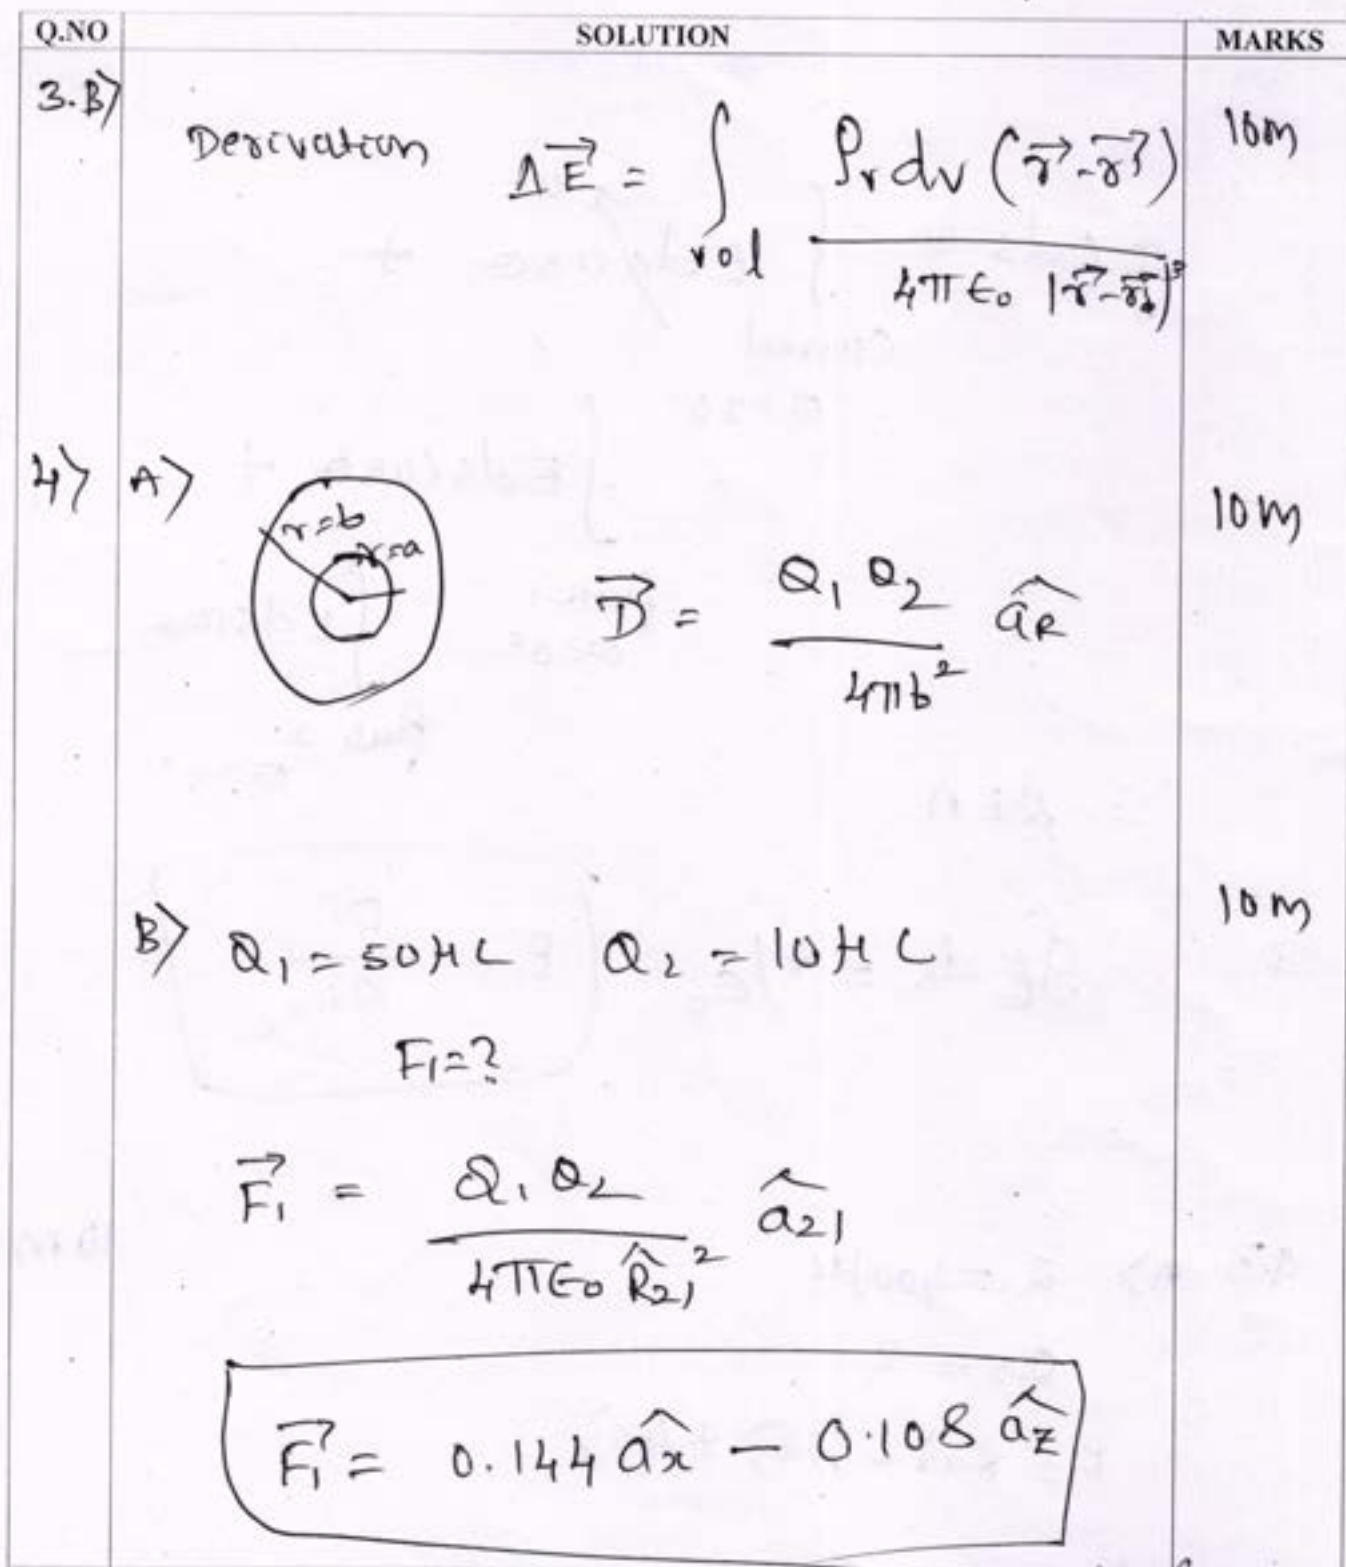 Q.NO SOLUTION MARKS
3.B) Derivation ΔE⃗ = ∫vol ρv dv (r⃗ - r⃗') / 4π ε₀ |r⃗ - r⃗'|³ 10m
4) A) r=b r=a D⃗ = Q₁ Q₂ / 4πb² âR 10m
B) Q₁ = 50 μC Q₂ = 10 μC 10m
F₁ = ?
F⃗₁ = Q₁ Q₂ / 4πε₀ R̂₂₁² â₂₁
F⃗₁ = 0.144 âx - 0.108 âz